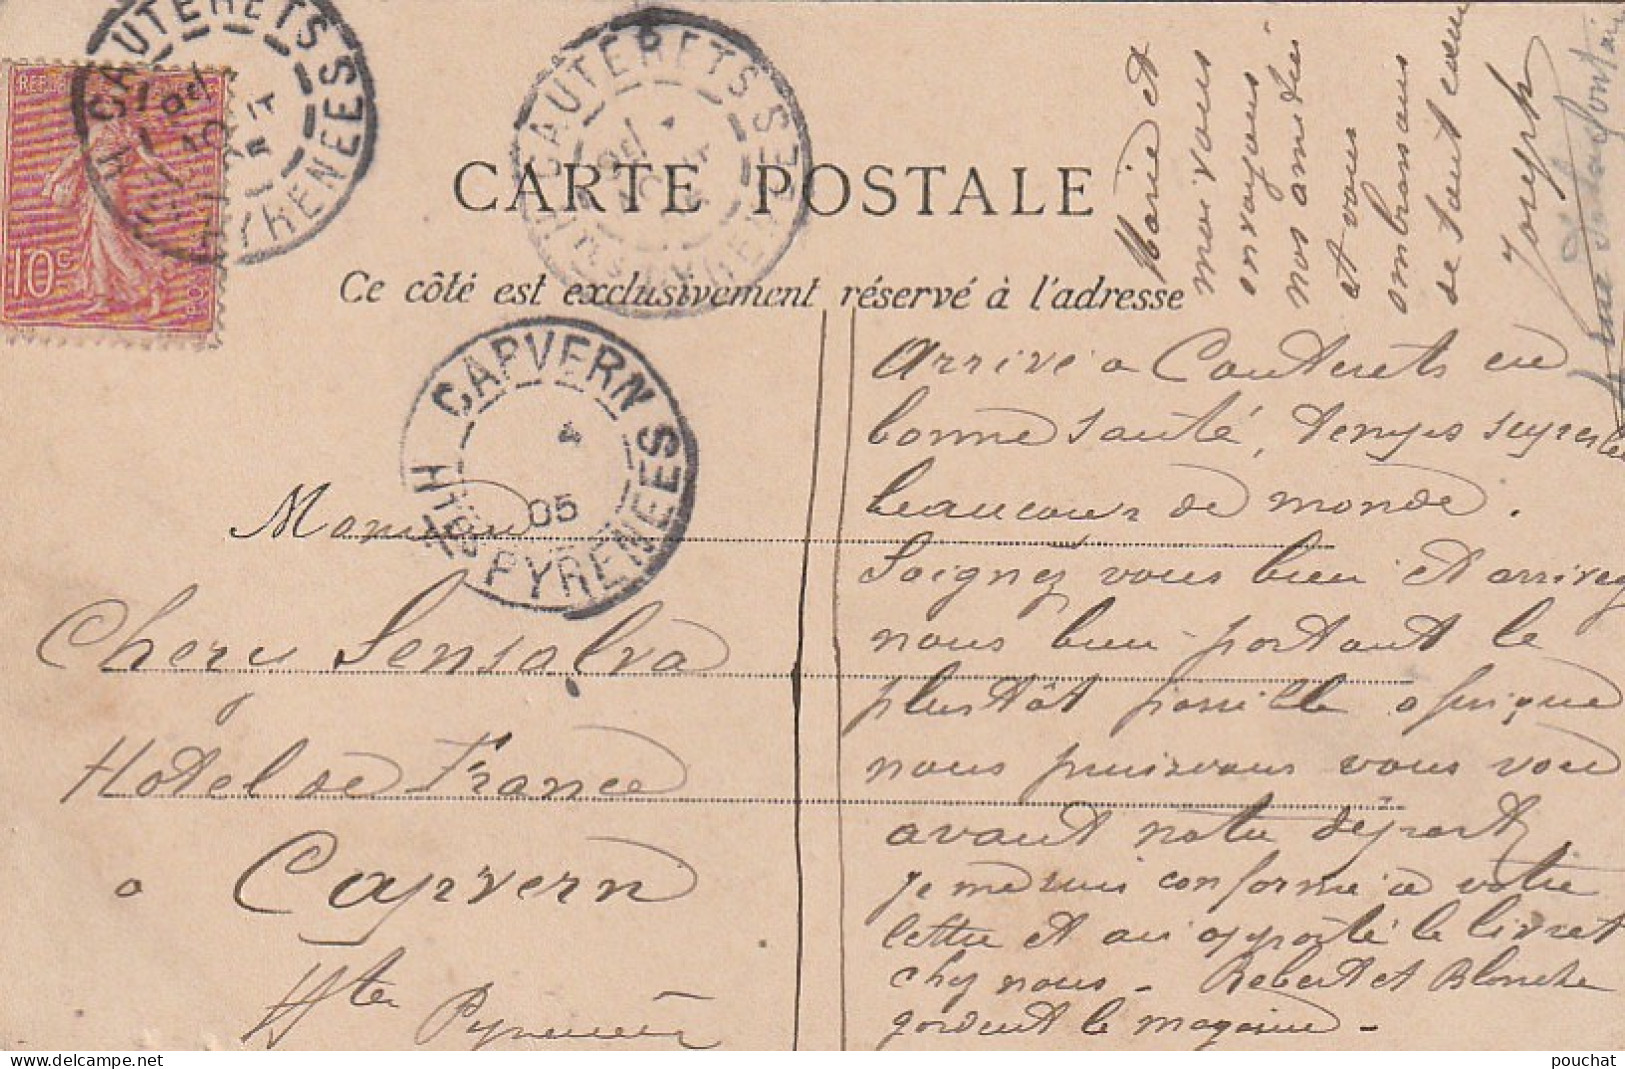 CARTE POSTALE
Ce côté est exclusivement réservé à l'adresse
REPUBLIQUE FRANÇAISE
10c
POSTES
CAUTERETS
Htes PYRENEES
CAUTERETS
Htes PYRENEES
CAPVERN
05
Htes PYRENEES
Monsieur
Chery Sensalva
Hotel de France
a Capvern
Htes Pyrenées
Arrivé a Cauterets en
bonne santé, temps superbe
beaucour de monde.
Soignez vous bien et arrivez
nous bien portant le
plustôt possible afin que
nous puissions vous voir
avant notre départ,
je me suis conformé a votre
lettre et ai apporté le livret
chez nous - Robert et Blanche
gardent le magasin -
Marie et
moi vous
envoyons
nos amitiés
et vous
embrassons
de tout cœur
Joseph